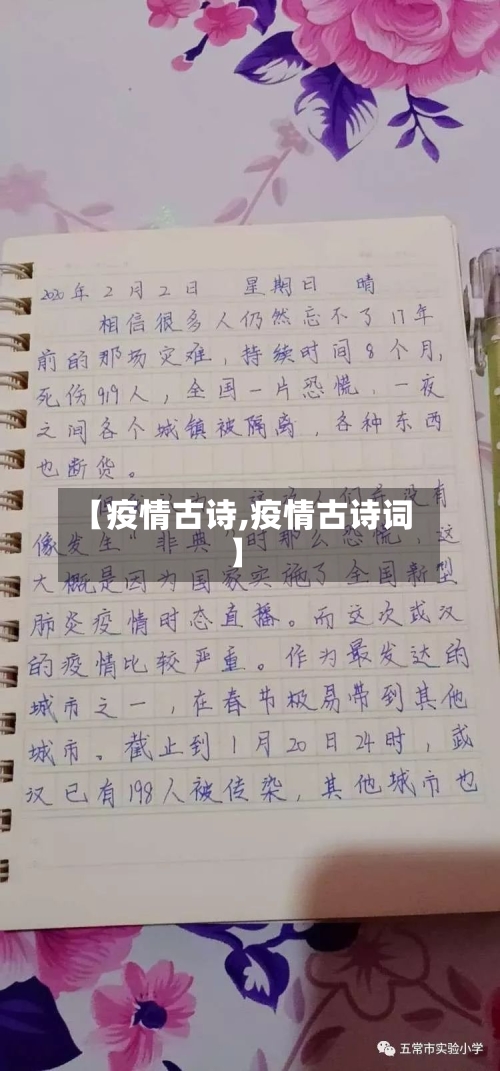 2020年2月2日 星期日 晴
相信很多人仍然忘不了17年
前的那场灾难，持续时间8个月，
死伤919人，全国一片恐慌，一夜
之间各个城镇被隔离，各种东西
也断货。
有
【疫情古诗,疫情古诗词
】
像发生“非典”时那么恐慌，这
大概是因为国家实施了全国新型
肺炎疫情时态直播。而这次武汉
的疫情比较严重。作为最发达的
城市之一，在春节极易带到其他
城市。截止到1月20日24时，武
汉已有198人被传染，其他城市也
五常市实验小学